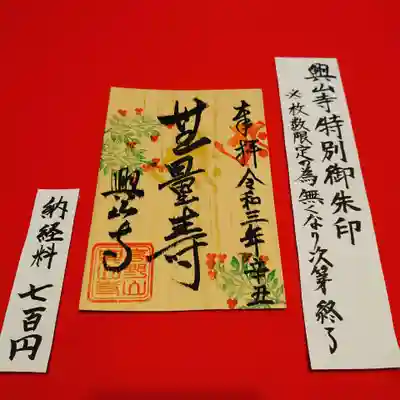 興山寺特別御朱印
※枚数限定の為無くなり次第終了
奉拝 令和三年 辛丑
無量寿
興山寺
納経料 七百円